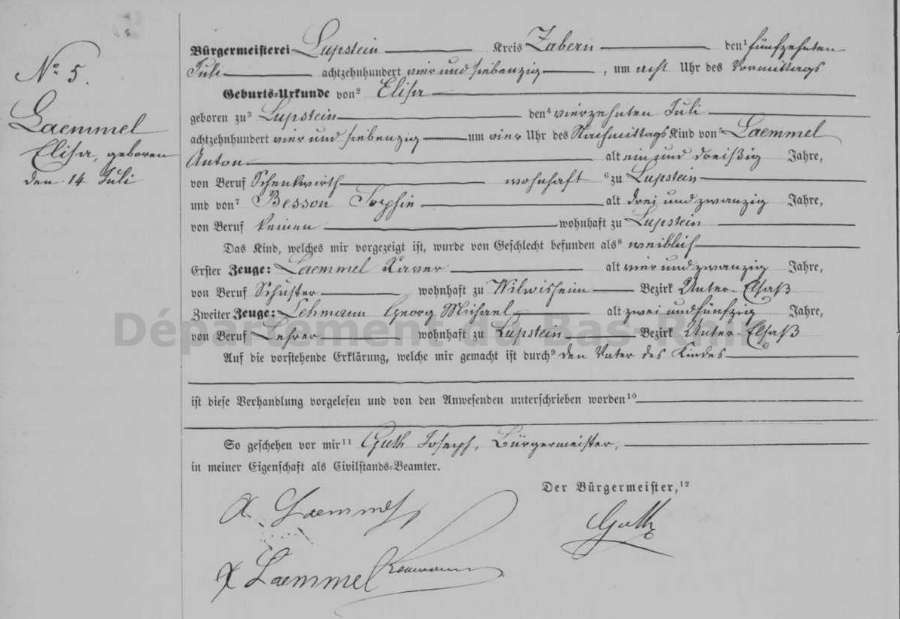 No 5.
Laemmel
Elisa, geboren
den 14 Juli
Bürgermeisterei Lupstein Kreis Zabern den1 fünfzehnten
Juli achtzehnhundert vier und siebenzig, um acht Uhr des Vormittags
Geburts-Urkunde von2 Elisa
geboren zu3 Lupstein den4 vierzehnten Juli
achtzehnhundert vier und siebenzig um vier Uhr des Nachmittags Kind von5 Laemmel
Anton alt ein und dreißig Jahre,
von Beruf Schenkwirth wohnhaft 6zu Lupstein
und von7 Besson Sophie alt drei und zwanzig Jahre,
von Beruf keinen wohnhaft zu Lupstein
Das Kind, welches mir vorgezeigt ist, wurde von Geschlecht befunden als8 weiblich
Erster Zeuge: Laemmel Xaver alt vier und zwanzig Jahre,
von Beruf Schuster wohnhaft zu Wilwisheim Bezirk Unter-Elsaß
Zweiter Zeuge: Lehmann Georg Michael alt zwei und fünfzig Jahre,
von Beruf Lehrer wohnhaft zu Lupstein Bezirk Unter-Elsaß
Département du Bas-Rhin
Auf die vorstehende Erklärung, welche mir gemacht ist durch9 den Vater des Kindes
ist diese Verhandlung vorgelesen und von den Anwesenden unterschrieben worden10
So geschehen vor mir11 Guth Joseph, Bürgermeister,
in meiner Eigenschaft als Civilstands-Beamter.
Der Bürgermeister,12
A. Laemmel
Guth
X Laemmel